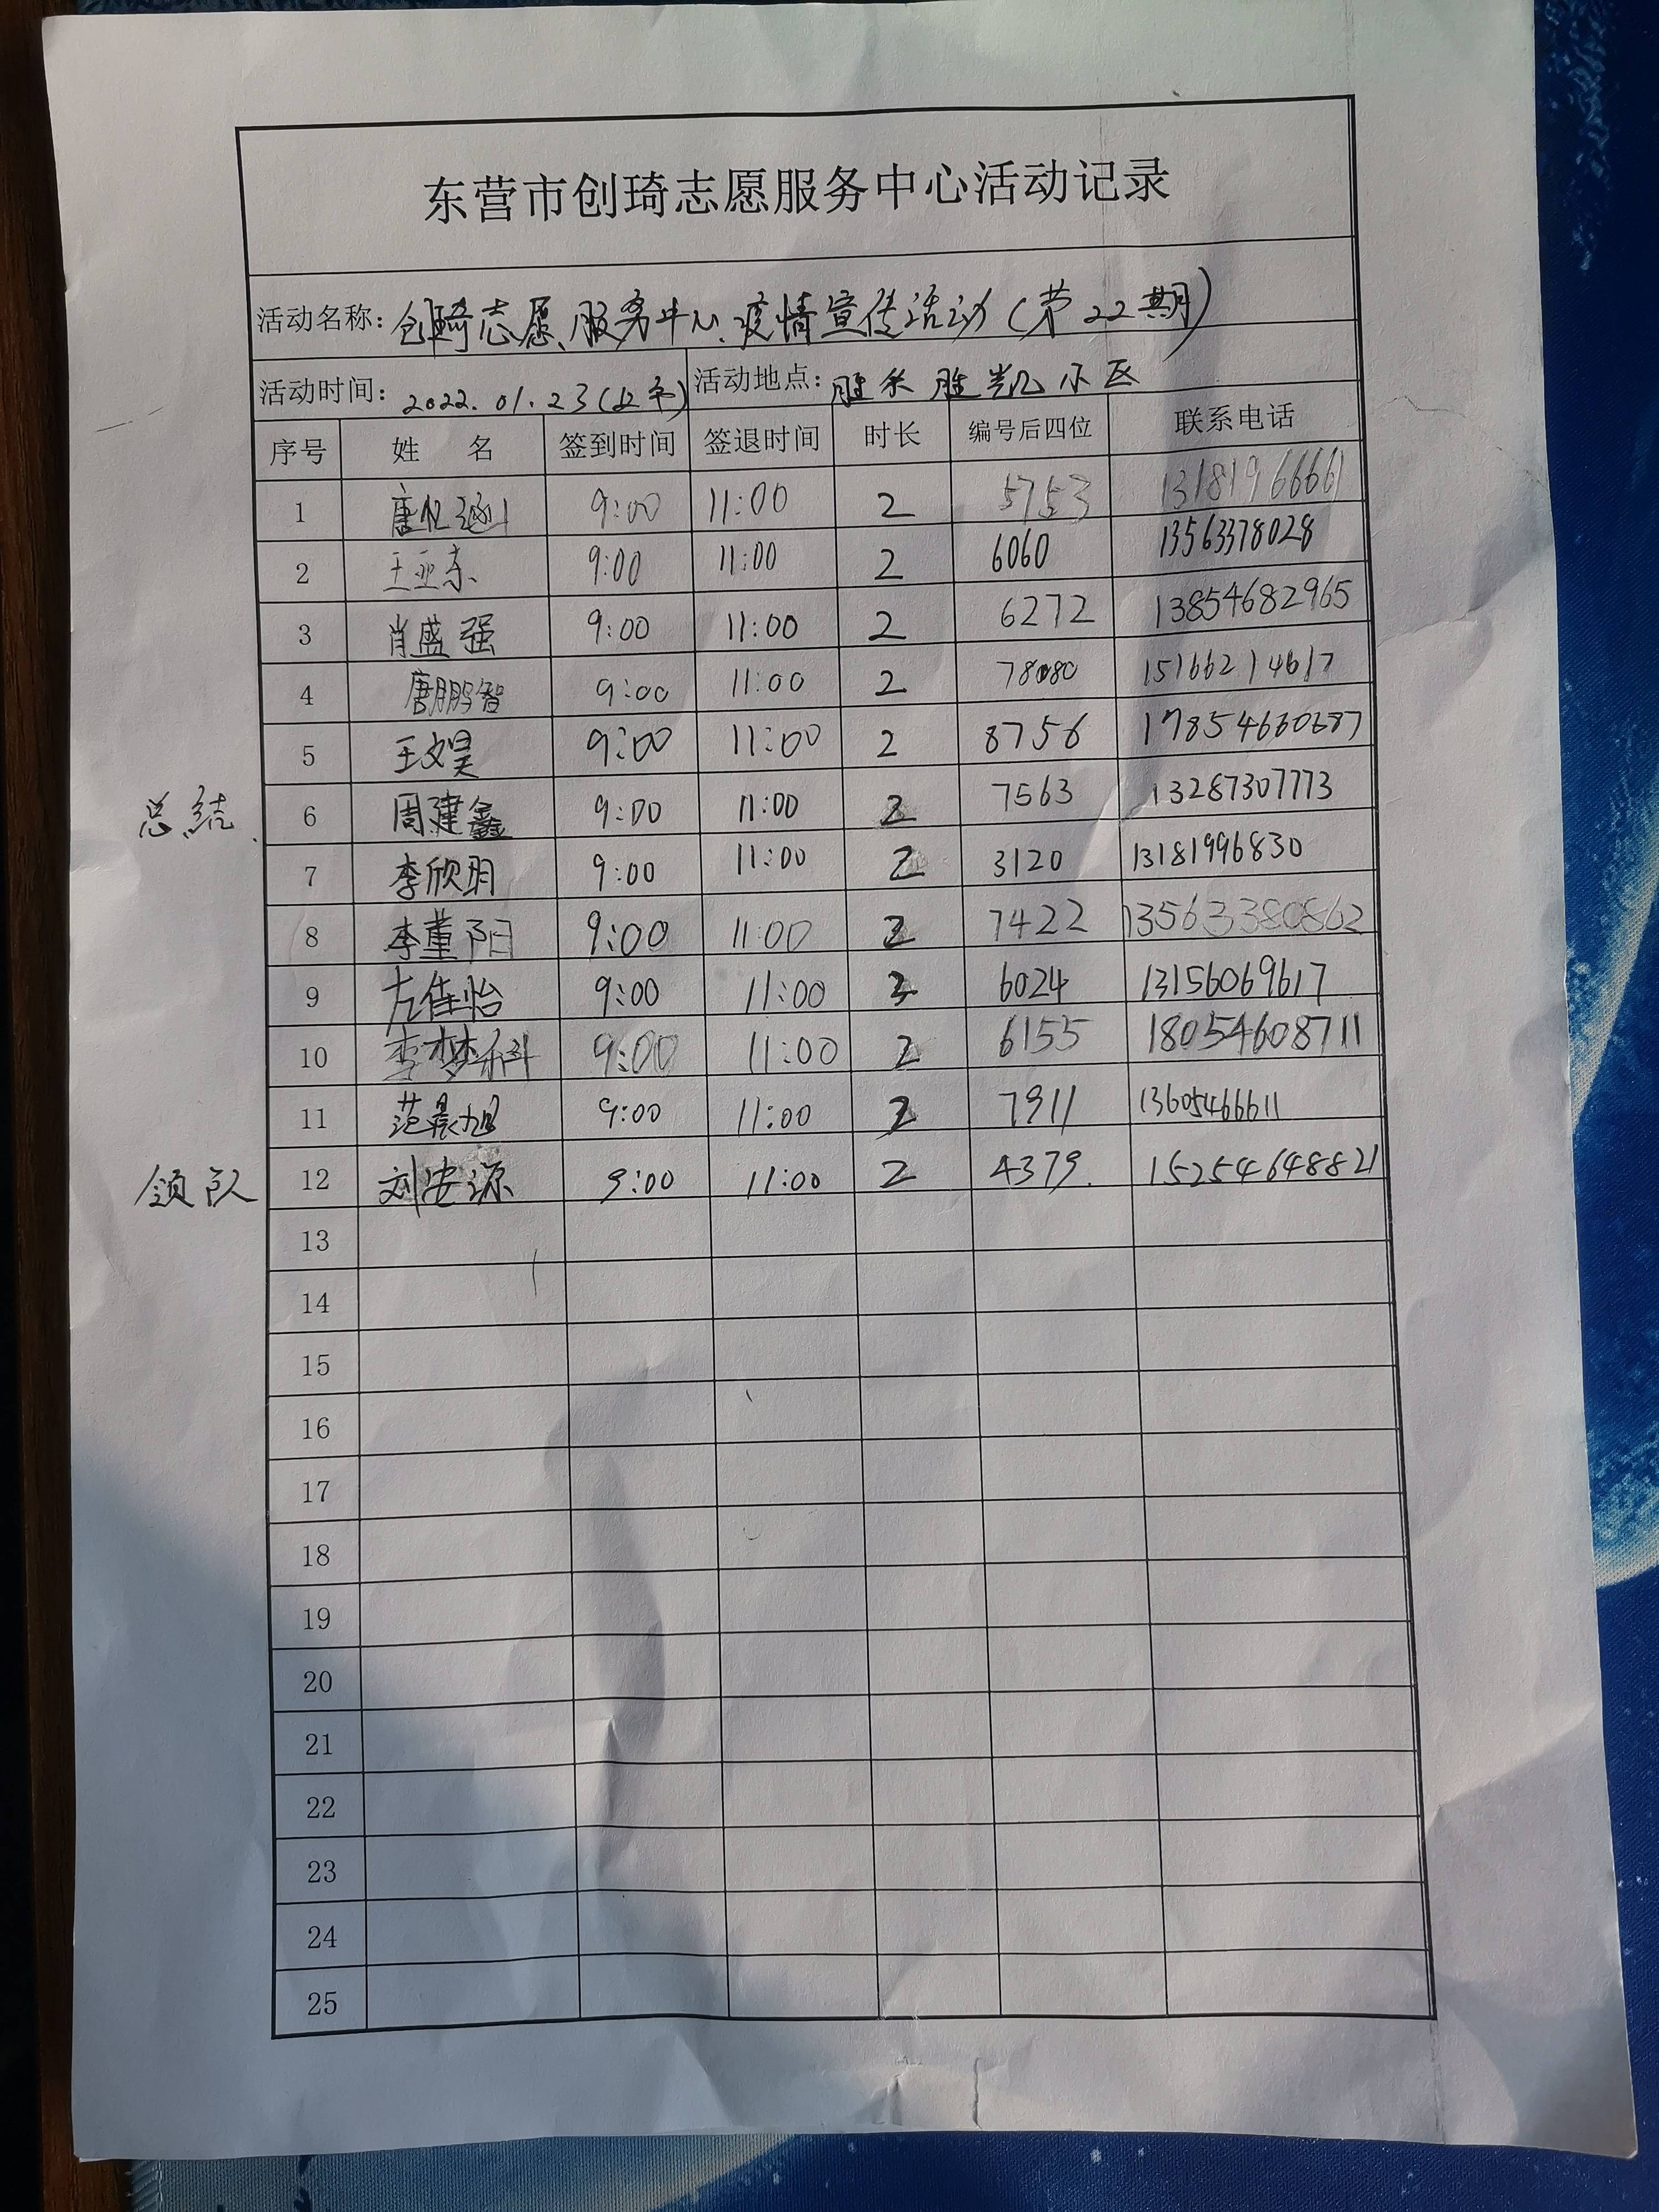 东营市创琦志愿服务中心活动记录
活动名称: 创琦志愿服务中心疫情宣传活动(第22期)
活动时间: 2022.01.23(上午) 活动地点: 胜利胜凯小区
序号 姓 名 签到时间 签退时间 时长 编号后四位 联系电话
1 唐 9:00 11:00 2 5753 13181966661
2 王亚东 9:00 11:00 2 6060 13563378028
3 肖盛强 9:00 11:00 2 6272 13854682965
4 唐鹏智 9:00 11:00 2 15166214617
5 王文昊 9:00 11:00 2 8756
总结 6 周建鑫 9:00 11:00 2 7563 13287307773
7 李欣玥 9:00 11:00 2 3120 13181996830
8 李董阳 9:00 11:00 2 7422 13563380862
9 左佳怡 9:00 11:00 2 6024 13156069617
10 李梦科 9:00 11:00 2 6155 18054608711
11 范晨旭 9:00 11:00 2 7911 13605466611
领队 12 刘安源 9:00 11:00 2 4379. 15254648821
13
14
15
16
17
18
19
20
21
22
23
24
25